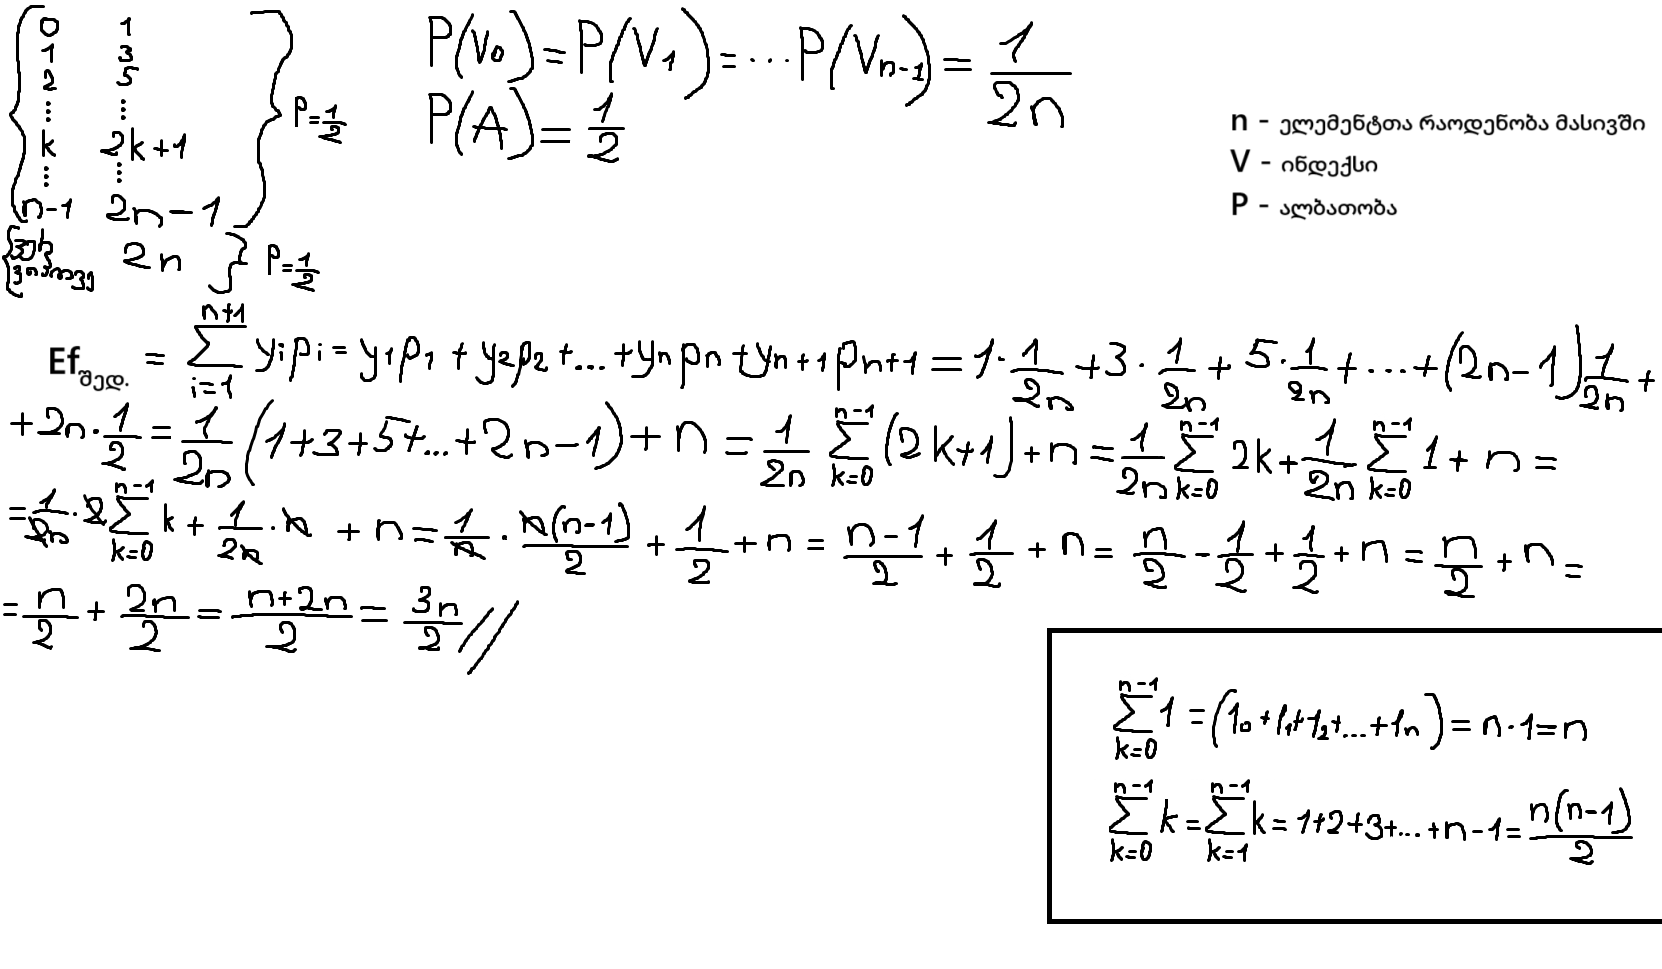 0 1
1 3
2 5
⋮ ⋮
k 2k+1
⋮ ⋮
n-1 2n-1
P=1/2
ვერ ვიპოვე 2n P=1/2
P(V₀)=P(V₁)=...P(Vₙ₋₁)=1/2n
P(A)=1/2
n - ელემენტთა რაოდენობა მასივში
V - ინდექსი
P - ალბათობა
Ef შედ. = ∑_{i=1}^{n+1} yᵢpᵢ = y₁p₁ + y₂p₂ + ... + yₙpₙ + yₙ₊₁pₙ₊₁ = 1·1/2n + 3·1/2n + 5·1/2n + ... + (2n-1)1/2n +
+ 2n·1/2 = 1/2n (1+3+5+...+2n-1) + n = 1/2n ∑_{k=0}^{n-1} (2k+1) + n = 1/2n ∑_{k=0}^{n-1} 2k + 1/2n ∑_{k=0}^{n-1} 1 + n =
= 1/2n · 2 ∑_{k=0}^{n-1} k + 1/2n · n + n = 1/n · n(n-1)/2 + 1/2 + n = n-1/2 + 1/2 + n = n/2 - 1/2 + 1/2 + n = n/2 + n =
= n/2 + 2n/2 = n+2n/2 = 3n/2 //
∑_{k=0}^{n-1} 1 = (1₀+1₁+1₂+...+1ₙ) = n·1=n
∑_{k=0}^{n-1} k = ∑_{k=1}^{n-1} k = 1+2+3+...+n-1 = n(n-1)/2